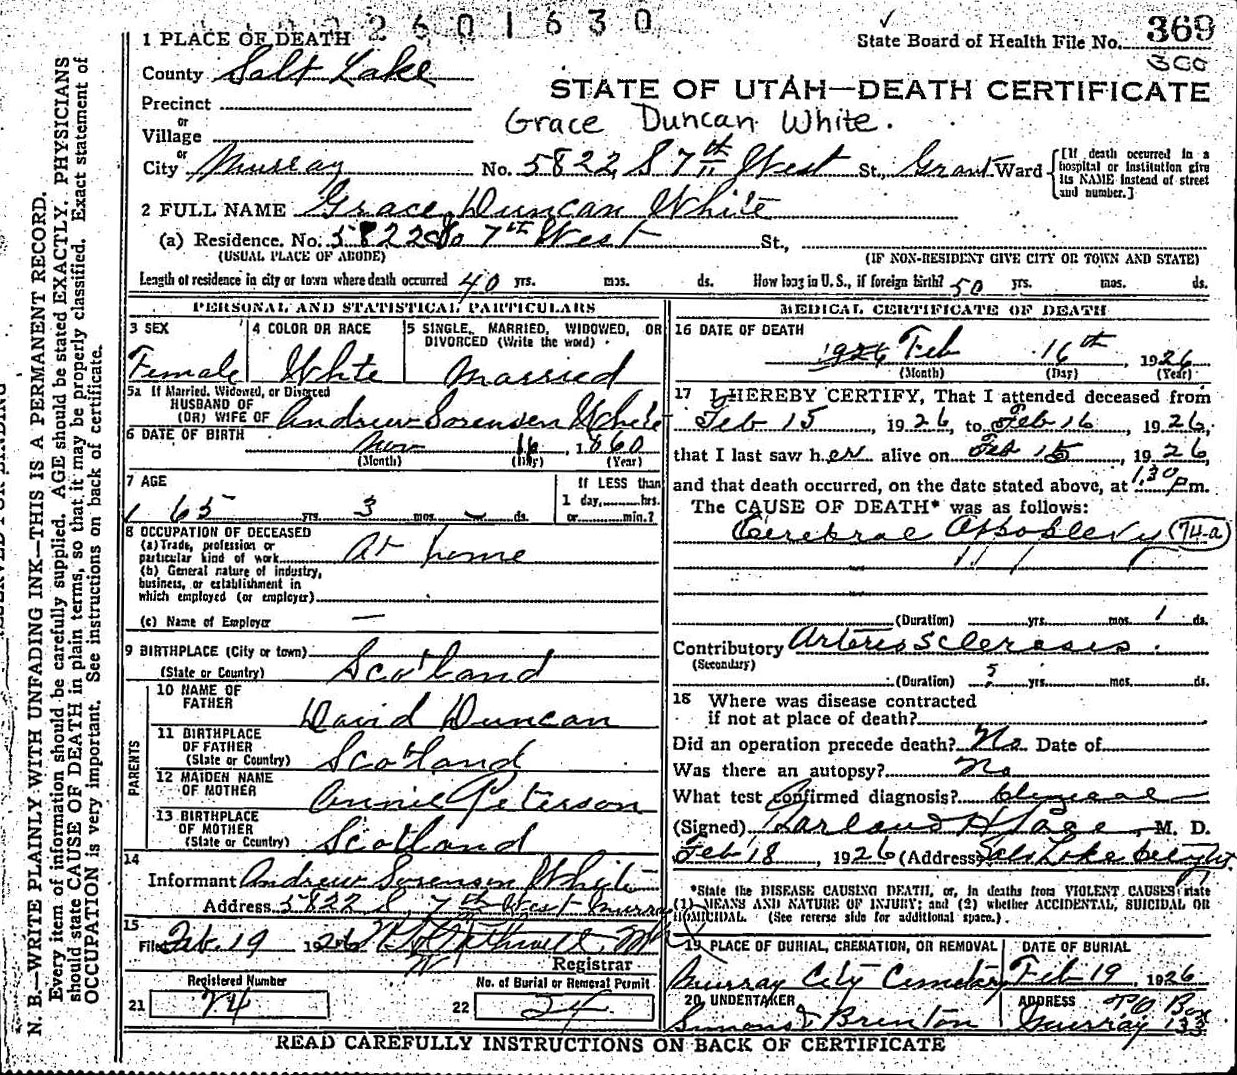 2601630
State Board of Health File No. 369
300
STATE OF UTAH—DEATH CERTIFICATE
Grace Duncan White.
1 PLACE OF DEATH
County Salt Lake
Precinct
or
Village
or
City Murray No. 5822 S 7th West St., Grant Ward
[If death occurred in a hospital or institution give its NAME instead of street and number.]
2 FULL NAME Grace Duncan White
(a) Residence. No. 5822 So 7th West St.,
(USUAL PLACE OF ABODE) (IF NON-RESIDENT GIVE CITY OR TOWN AND STATE)
Length of residence in city or town where death occurred 40 yrs. mos. ds. How long in U. S., if foreign birth? 50 yrs. mos. ds.
PERSONAL AND STATISTICAL PARTICULARS
3 SEX
Female
4 COLOR OR RACE
White
5 SINGLE, MARRIED, WIDOWED, OR DIVORCED (Write the word)
Married
5a If Married, Widowed, or Divorced
HUSBAND OF
(OR) WIFE OF Andrew Sorensen White
6 DATE OF BIRTH Nov 16, 1860
(Month) (Day) (Year)
7 AGE
65 yrs. 3 mos. – ds.
If LESS than
1 day, hrs.
or min.?
8 OCCUPATION OF DECEASED
(a) Trade, profession or
particular kind of work At home
(b) General nature of industry,
business, or establishment in
which employed (or employer)
(c) Name of Employer —
9 BIRTHPLACE (City or town)
(State or Country) Scotland
PARENTS
10 NAME OF FATHER David Duncan
11 BIRTHPLACE OF FATHER
(State or Country) Scotland
12 MAIDEN NAME OF MOTHER Annie Peterson
13 BIRTHPLACE OF MOTHER
(State or Country) Scotland
14
Informant Andrew Sorensen White
Address 5822 S, 7th West Murray
15
Filed Feb 19 1926
Registrar
Registered Number
21 74
No. of Burial or Removal Permit
22 24
MEDICAL CERTIFICATE OF DEATH
16 DATE OF DEATH
1926 Feb 16th, 1926
(Month) (Day) (Year)
17 I HEREBY CERTIFY, That I attended deceased from
Feb 15, 1926, to Feb 16, 1926,
that I last saw her alive on Feb 15, 1926,
and that death occurred, on the date stated above, at 1:30 Pm.
The CAUSE OF DEATH* was as follows:
Cerebral Appoplexy 74-a
(Duration) yrs. mos. 1 ds.
Contributory Arterio Sclerosis.
(Secondary)
(Duration) 5 yrs. mos. ds.
18 Where was disease contracted
if not at place of death?
Did an operation precede death? No Date of
Was there an autopsy? No
What test confirmed diagnosis? Clinical
(Signed) Harland H Page, M. D.
Feb 18, 1926 (Address) Salt Lake
*State the DISEASE CAUSING DEATH, or, in deaths from VIOLENT CAUSES state
(1) MEANS AND NATURE OF INJURY; and (2) whether ACCIDENTAL, SUICIDAL OR
HOMICIDAL. (See reverse side for additional space.)
19 PLACE OF BURIAL, CREMATION, OR REMOVAL
Murray City Cemetery
DATE OF BURIAL
Feb 19, 1926
20 UNDERTAKER
Brenton
ADDRESS PO Box
Murray 133
READ CAREFULLY INSTRUCTIONS ON BACK OF CERTIFICATE
N. B.—WRITE PLAINLY WITH UNFADING INK—THIS IS A PERMANENT RECORD.
Every item of information should be carefully supplied. AGE should be stated EXACTLY. PHYSICIANS
should state CAUSE OF DEATH in plain terms, so that it may be properly classified. Exact statement of
OCCUPATION is very important. See instructions on back of certificate.